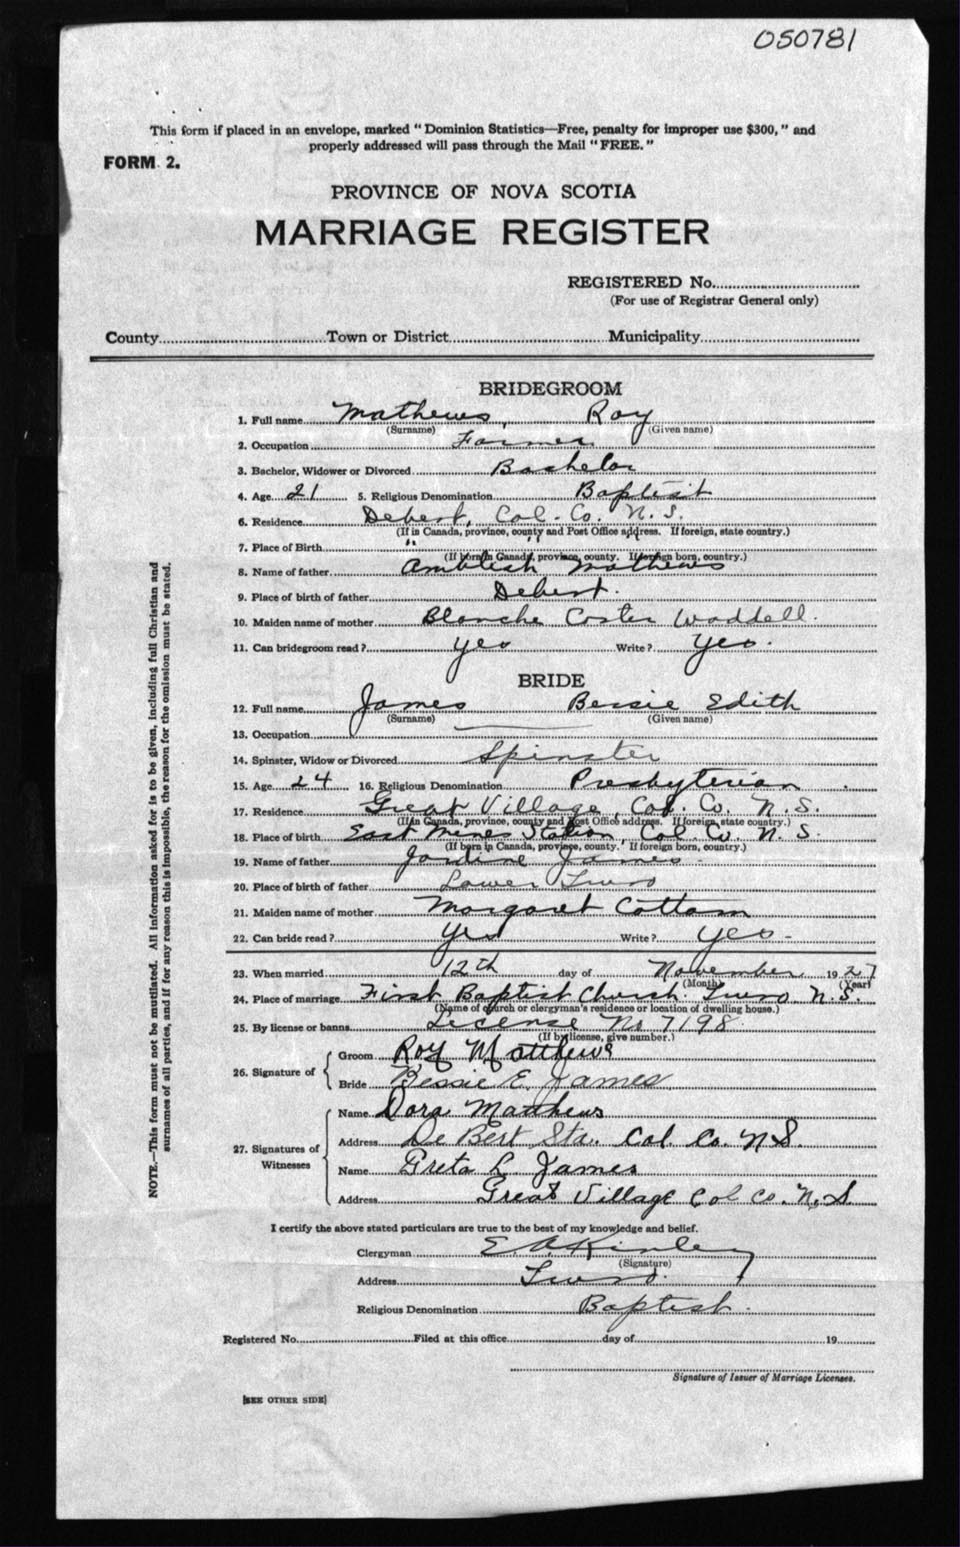 050781
This form if placed in an envelope, marked "Dominion Statistics—Free, penalty for improper use $300," and
properly addressed will pass through the Mail "FREE."
FORM 2.
PROVINCE OF NOVA SCOTIA
MARRIAGE REGISTER
REGISTERED No.
(For use of Registrar General only)
County Town or District Municipality
BRIDEGROOM
1. Full name Mathews, Roy
(Surname) (Given name)
2. Occupation Farmer
3. Bachelor, Widower or Divorced Bachelor
4. Age 21 5. Religious Denomination Baptist
6. Residence Debert, Col. Co. N.S.
(If in Canada, province, county and Post Office address. If foreign, state country.)
7. Place of Birth " " "
(If born in Canada, province, county. If foreign born, country.)
8. Name of father Mathews
9. Place of birth of father Debert.
10. Maiden name of mother Blanche Coster Waddell.
11. Can bridegroom read? yes Write? yes.
BRIDE
12. Full name James Bessie Edith
(Surname) (Given name)
13. Occupation
14. Spinster, Widow or Divorced Spinster
15. Age 24 16. Religious Denomination Presbyterian
17. Residence Great Village, Col. Co. N.S.
(If in Canada, province, county and Post Office address. If foreign, state country.)
18. Place of birth East Mines Station Col. Co. N.S.
(If born in Canada, province, county. If foreign born, country.)
19. Name of father Jardine James.
20. Place of birth of father Lower Truro
21. Maiden name of mother Margaret Cottam
22. Can bride read? yes Write? yes-
23. When married 12th day of November 1927
(Month) (Year)
24. Place of marriage First Baptist Church Truro N.S.
(Name of church or clergyman's residence or location of dwelling house.)
25. By license or banns License No 7198
(If by license, give number.)
26. Signature of
Groom Roy Matthews
Bride Bessie E. James
27. Signatures of Witnesses
Name Dora Matthews
Address De Bert Sta. Col. Co. N.S.
Name Greta L James
Address Great Village Col Co. N.S.
I certify the above stated particulars are true to the best of my knowledge and belief.
Clergyman E A Kinley
(Signature)
Address Truro.
Religious Denomination Baptist.
Registered No. Filed at this office day of 19
Signature of Issuer of Marriage Licenses.
[SEE OTHER SIDE]
NOTE.—This form must not be mutilated. All information asked for is to be given, including full Christian and
surnames of all parties, and if for any reason this is impossible, the reason for the omission must be stated.